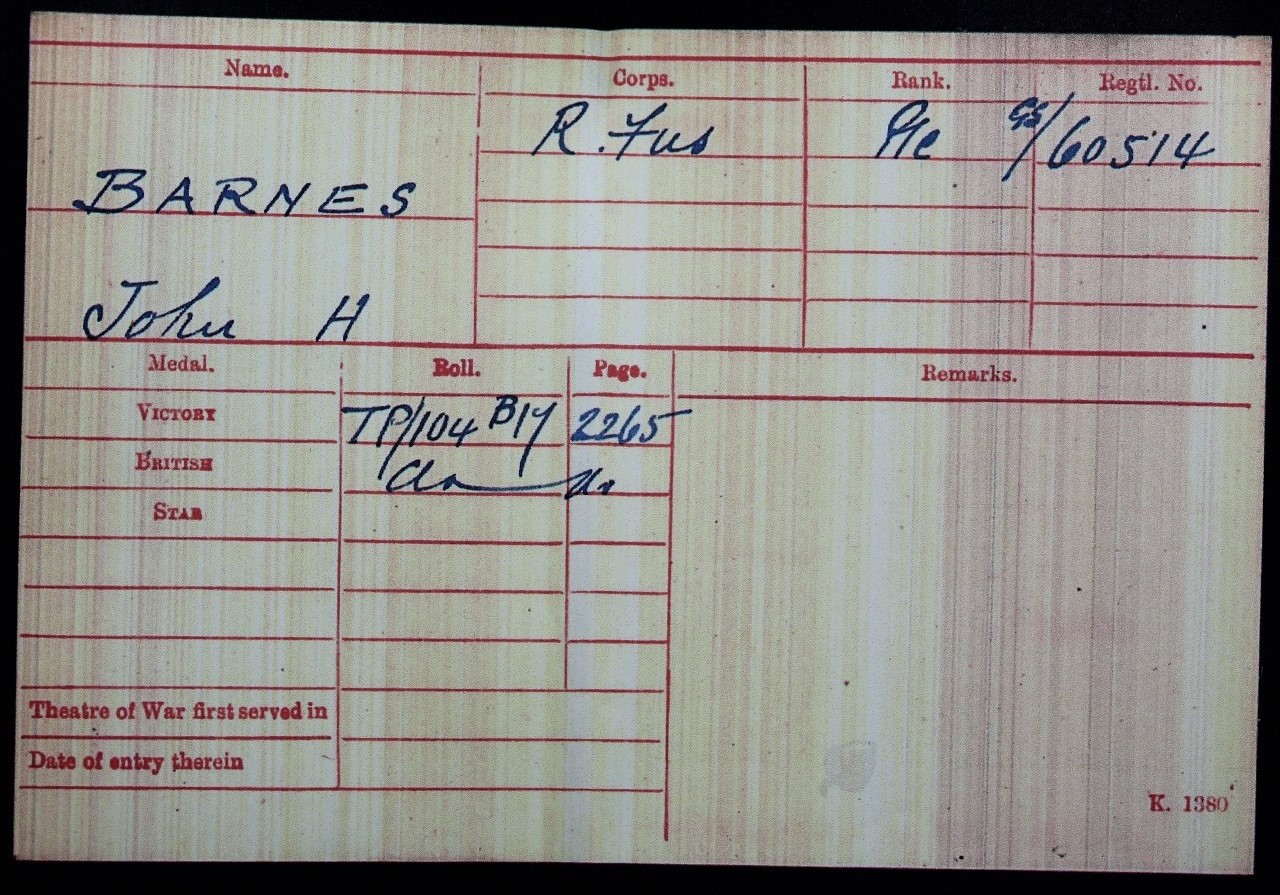 Name. Corps. Rank. Regtl. No.
R. Fus Pte GS/60514
BARNES
John H
Medal. Roll. Page. Remarks.
VICTORY TP/104 B17 2265
BRITISH do do
STAR
Theatre of War first served in
Date of entry therein
K. 1380